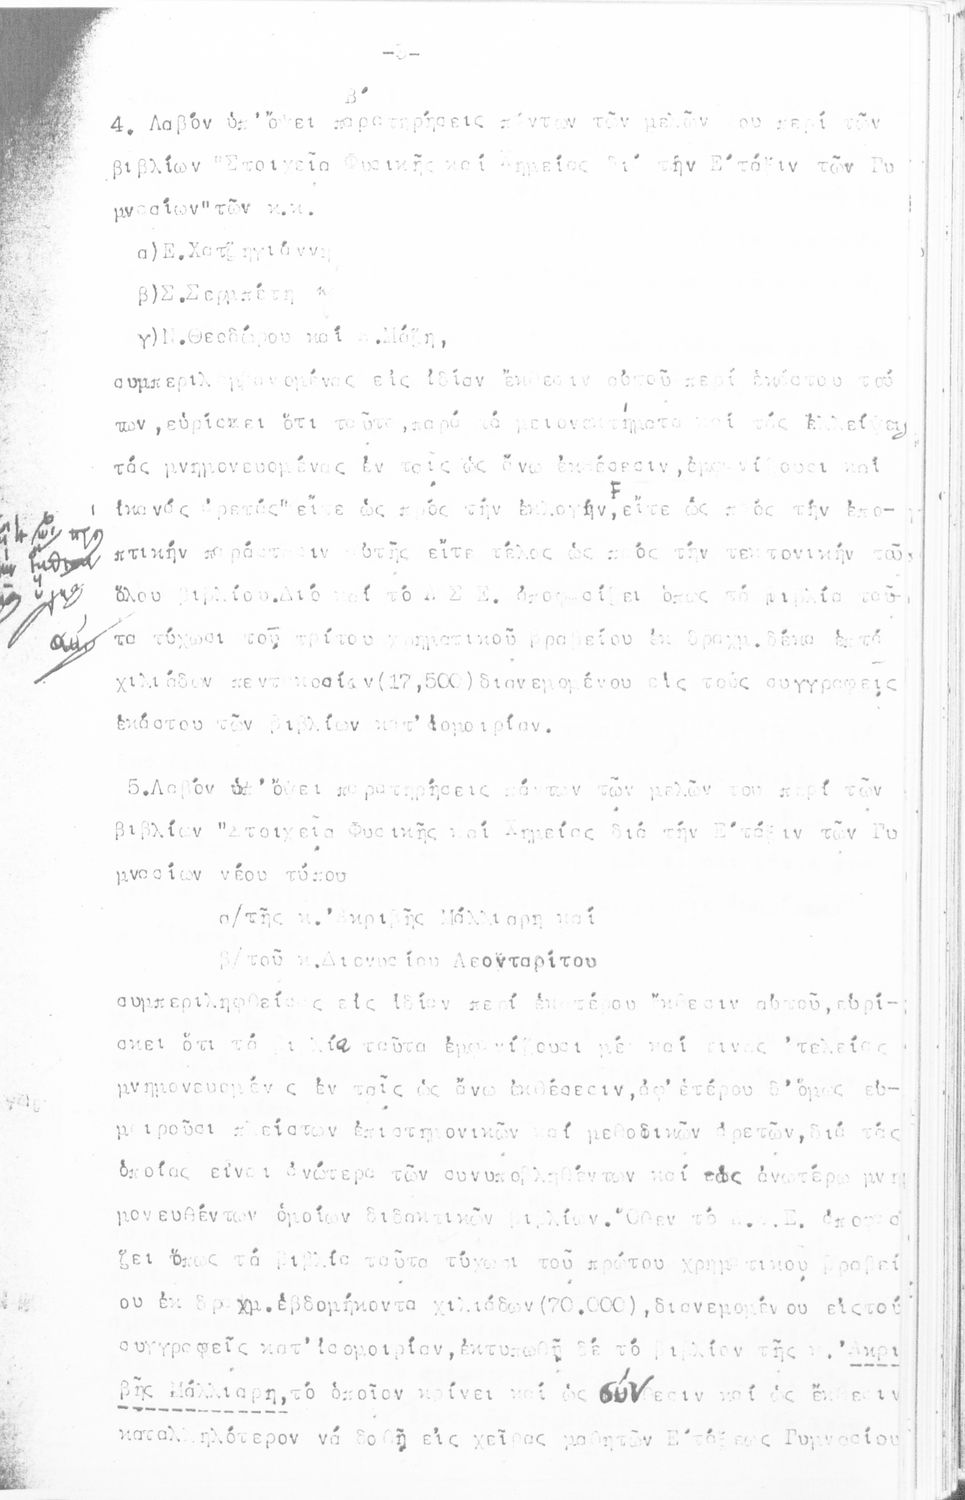 -5-
Β´
4. Λαβόν ὑπ'ὄψει παρατηρήσεις πάντων τῶν μελῶν του περί τῶν
βιβλίων "Στοιχεῖα Φυσικῆς καί Χημείας δι' τήν Ε´τάξιν τῶν Γυ
μνασίων" τῶν κ.κ.
α)Ε.Χατζηγιάννη
β)Σ.Σερμπέτη κ
γ)Ν.Θεοδώρου καί .Μάζη,
συμπεριλαμβανομένας εἰς ἰδίαν ἔκθεσιν αὐτοῦ περί ἑκάστου τού
των,εὑρίσκει ὅτι ταῦτα,παρά τά μειονεκτήματα καί τάς ἐλλείψεις
τάς μνημονευομένας ἐν ταῖς ὡς ἄνω ἐκθέσεσιν,ἐμφανίζουσι καί
ἱκανάς ἀρετάς" εἴτε ὡς πρός τήν ἐκλογήν,εἴτε ὡς πρός τήν ἐπο-
πτικήν παράστασιν αὐτῆς εἴτε τέλος ὡς πρός τήν τεκτονικήν τοῦ
ὅλου βιβλίου.Διό καί τό Α Σ Ε. ἀποφασίζει ὅπως τά βιβλία ταῦ-
τα τύχωσι τοῦ τρίτου χρηματικοῦ βραβείου ἐκ δραχμ.δέκα ἑπτά
χιλιάδων πεντακοσίων(17,500)διανεμομένου εἰς τούς συγγραφεῖς
ἑκάστου τῶν βιβλίων κατ'ἰσομοιρίαν.
5.Λαβόν ὑπ'ὄψει παρατηρήσεις πάντων τῶν μελῶν του περί τῶν
βιβλίων "Στοιχεῖα Φυσικῆς καί Χημείας διά τήν Ε´τάξιν τῶν Γυ
μνασίων νέου τύπου
α/τῆς κ.'Ακριβῆς Μάλλιαρη καί
β/τοῦ κ.Διονυσίου Λεονταρίτου
συμπεριληφθείσας εἰς ἰδίαν περί ἑκατέρου ἔκθεσιν αὐτοῦ,εὑρί-
σκει ὅτι τά βιβλία ταῦτα ἐμφανίζουσι μέν καί τινας 'τελείας
μνημονευομένας ἐν ταῖς ὡς ἄνω ἐκθέσεσιν,ἀφ'ἑτέρου δ'ὅμως εὐ-
μοιροῦσι πλείστων ἐπιστημονικῶν καί μεθοδικῶν ἀρετῶν,διά τάς
ὁποίας εἶναι ἀνώτερα τῶν συνυποβληθέντων καί ὡς ἀνωτέρω μνη
μονευθέντων ὁμοίων διδακτικῶν βιβλίων.Ὅθεν τό Α.Σ.Ε. ἀποφασί
ζει ὅπως τά βιβλία ταῦτα τύχωσι τοῦ πρώτου χρηματικοῦ βραβεί
ου ἐκ δραχμ.ἑβδομήκοντα χιλιάδων(70.000),διανεμομένου εἰςτού
συγγραφεῖς κατ'ἰσομοιρίαν,ἐκτυπωθῇ δέ τό βιβλίον τῆς κ.'Ακρι
βῆς Μάλλιαρη,τό ὁποῖον κρίνει καί ὡς σύνθεσιν καί ὡς ἔκθεσιν
καταλληλότερον νά δοθῇ εἰς χεῖρας μαθητῶν Ε´τάξεως Γυμνασίου